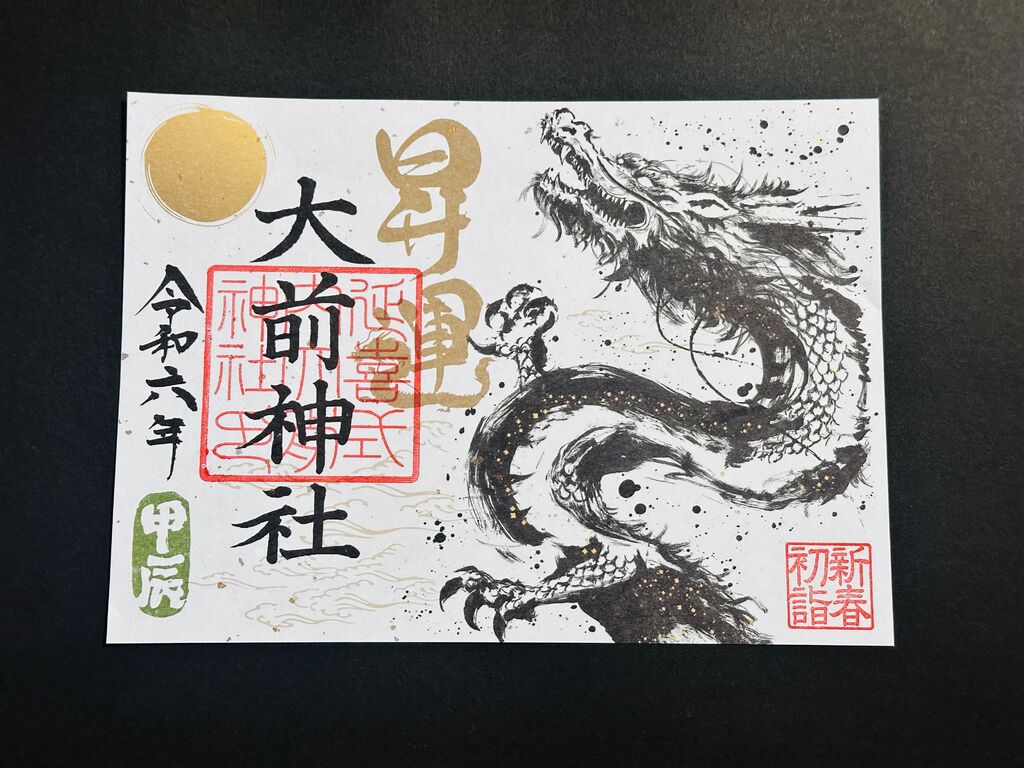 新春
初詣
昇運
大前神社
延喜式
内大前
神社
令和六年
甲辰